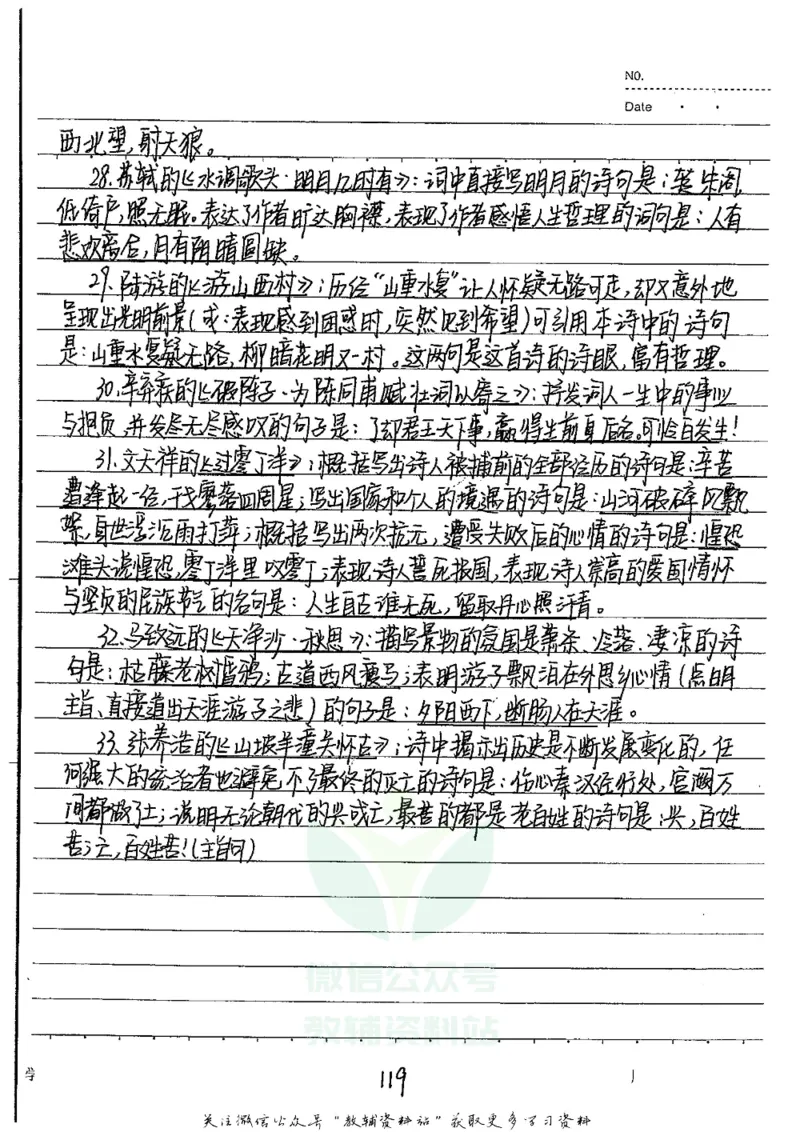 NO.
Date
西北望，射天狼。
28.苏轼的《水调歌头·明月几时有》：词中直接写明月的诗句是：转朱阁，
低绮户，照无眠。表达了作者旷达胸襟，表现了作者感悟人生哲理的词句是：人有
悲欢离合，月有阴晴圆缺。
29.陆游的《游山西村》：历经“山重水复”让人怀疑无路可走，却又意外地
呈现出光明前景（或：表现感到困惑时，突然见到希望）可引用本诗中的诗句
是：山重水复疑无路，柳暗花明又一村。这两句是这首诗的诗眼，富有哲理。
30.辛弃疾的《破阵子·为陈同甫赋壮词以寄之》：抒发词人一生中的事业
与抱负，并发尽无尽感叹的句子是：了却君王天下事，赢得生前身后名。可怜白发生！
31.文天祥的《过零丁洋》：概括写出诗人被捕前的全部经历的诗句是：辛苦
遭逢起一经，干戈寥落四周星；写出国家和个人的境遇的诗句是：山河破碎风飘
絮，身世浮沉雨打萍；概括写出两次抗元，遭受失败后的心情的诗句是：惶恐
滩头说惶恐，零丁洋里叹零丁；表现诗人誓死报国，表现诗人崇高的爱国情怀
与坚贞的民族节气的名句是：人生自古谁无死，留取丹心照汗青。
32.马致远的《天净沙·秋思》：描写景物的氛围是萧杀、冷落、凄凉的诗
句是：枯藤老树昏鸦；古道西风瘦马；表明游子飘泊在外思乡心情（点明
主旨、直接道出天涯游子之悲）的句子是：夕阳西下，断肠人在天涯。
33.张养浩的《山坡羊·潼关怀古》：诗中揭示出历史是不断发展变化的，任
何强大的统治者也避免不了最终的灭亡的诗句是：伤心秦汉经行处，宫阙万
间都做了土；说明无论朝代的兴或亡，最苦的都是老百姓的诗句是：兴，百姓
苦；亡，百姓苦！（主旨句）
微信公众号
教辅资料站
119
关注微信公众号“教辅资料站”获取更多学习资料